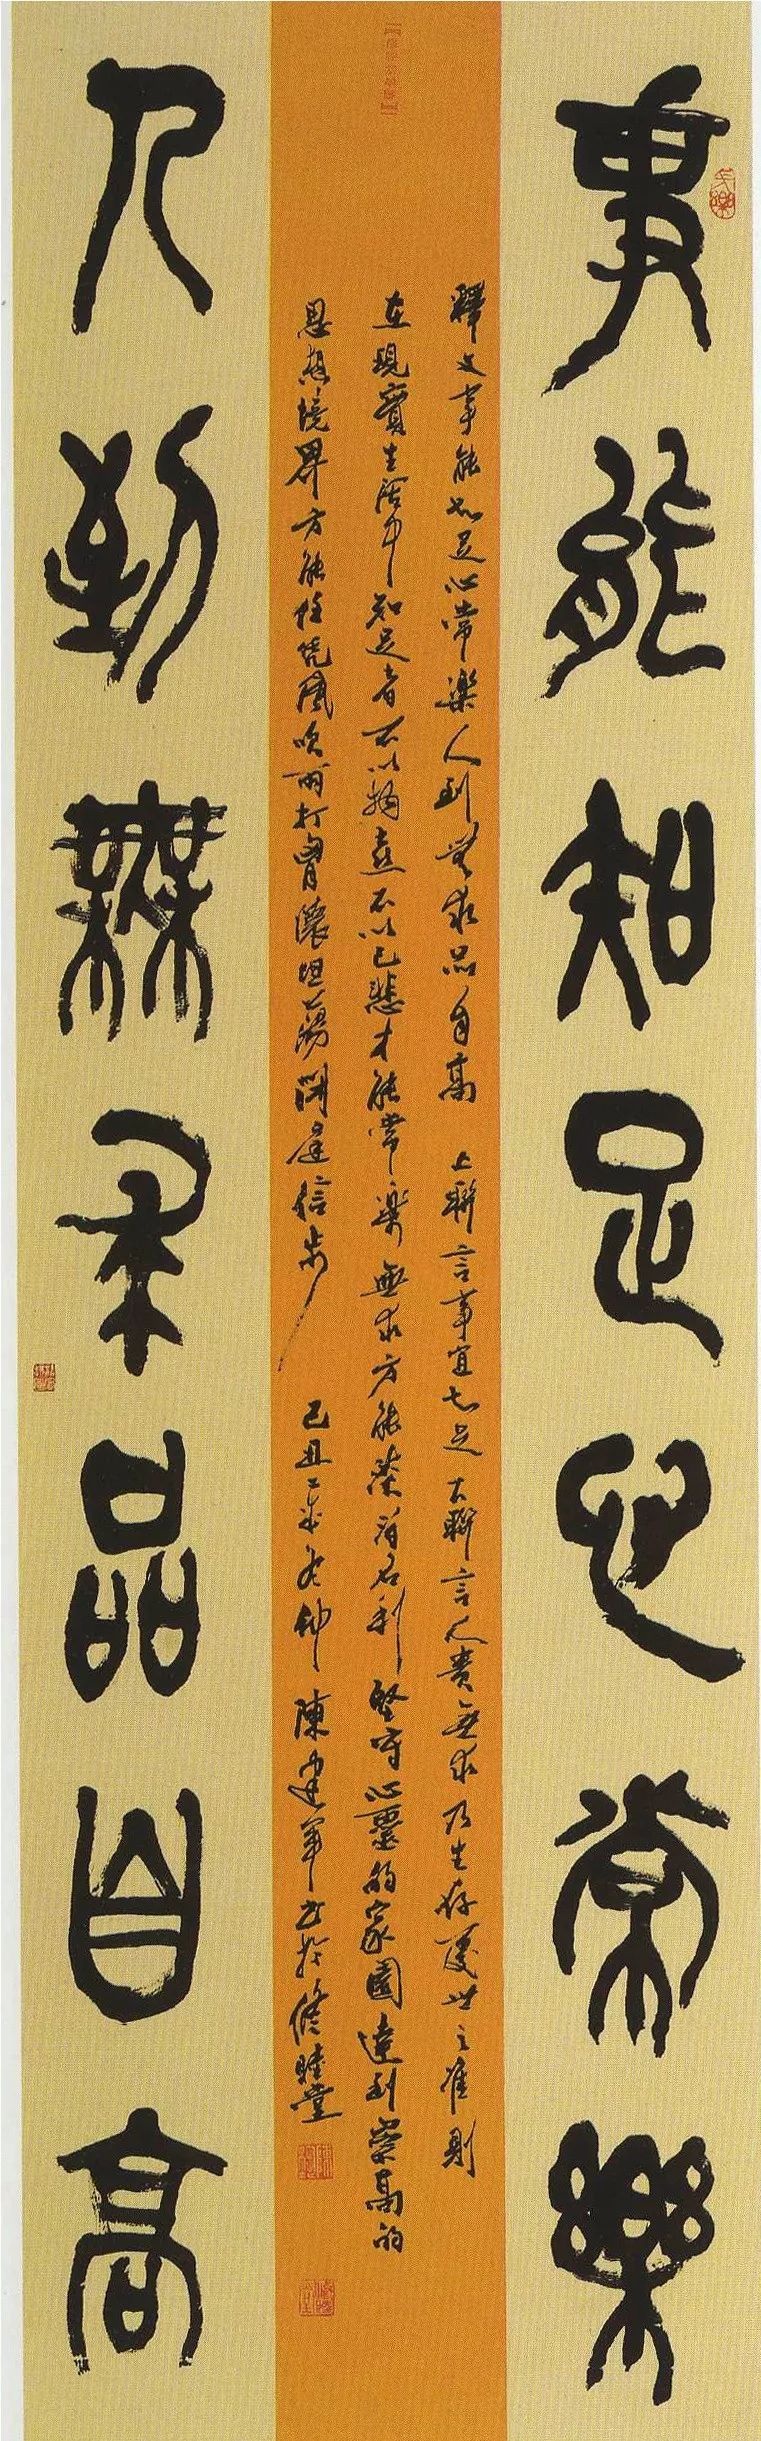 事能知足心常樂
人到無求品自高
釋文事能知足心常樂人到無求品自高 上聯言事宜知足下聯言人貴無求乃生存處世之准則
在現實生活中知足者不以物喜不以己悲才能常樂無求方能淡泊名利堅守心靈的家園達到崇高的
思想境界方能任凭風吹雨打胸懷坦蕩閑庭信步 己丑年冬仲陳建軍書於修睦堂